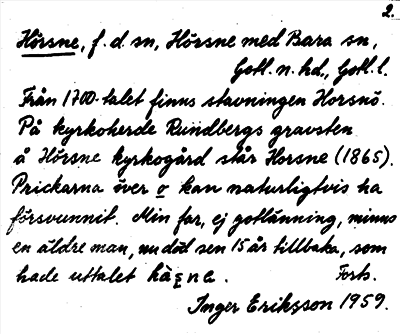 2.
Hörsne, f. d. sn, Hörsne med Bara sn,
Gotl. n. hd., Gotl. l.
Från 1700-talet finns stavningen Horsnö.
På kyrkoherde Rundbergs gravsten
å Hörsne kyrkogård står Horsne (1865).
Prickarna över o kan naturligtvis ha
försvunnit. Min far, ej gotlänning, minns
en äldre man, nu död sen 15 år tillbaka, som
hade uttalet
Forts.
Inger Eriksson 1959.